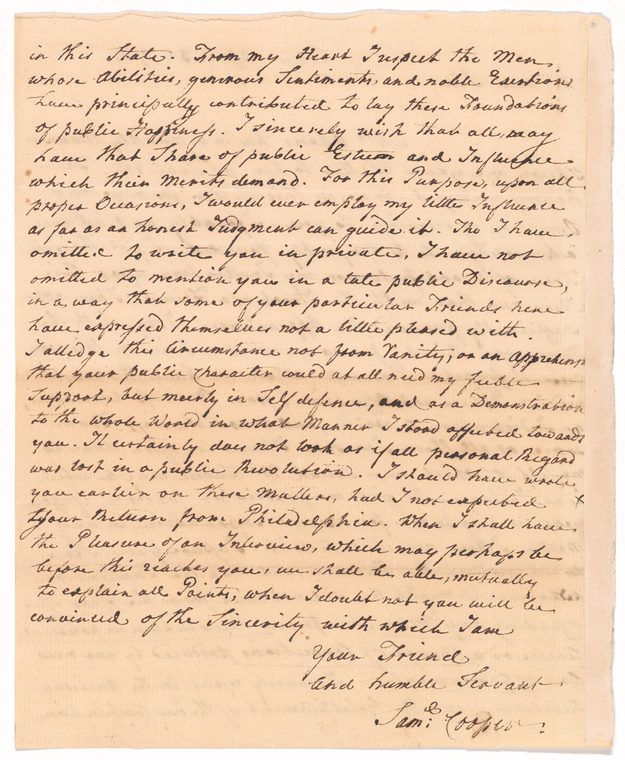 in this State. From my Heart I respect the Men,
whose Abilities, generous Sentements, and noble Exertions
have principally contributed to lay these Foundations
of public Happiness. I sincerely wish that all may
have that Share of public Esteem and Influence
which their Merits demand. For this Purpose, upon all
proper Occasions, I would ever employ my little Influence
as far as an honest Judgment can guide it. Tho I have
omitted to write you in private, I have not
omitted to mention you in a late public Discourse,
in a way that some of your particular Friends here
have expressed themselves not a little pleased with.
I alledge this Circumstance not from Vanity, or an Apprehension
that your public Character could at all need my feeble
Support, but merely in Self defence, and as a Demonstration
to the whole World in what Manner I stood affected towards
you. It certainly does not look as if all personal Regard
was lost in a public Revolution. I should have wrote
you earlier on these Matters, had I not expected
your Return from Philadelphia. When I shall have
the Pleasure of an Interview, which may perhaps be
before this reaches you, we shall be able, mutually
to explain all Points, when I doubt not you will be
convinced of the Sincerity with which I am
Your Friend
and humble Servant
Saml. Cooper.